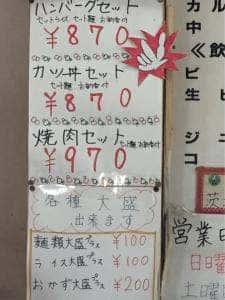 ハンバーグセット
セットライス セット麺 お新香付
¥870
カツ丼セット
セット麺 お新香付
¥870
焼肉セット
セット麺 お新香付
¥970
各種大盛
出来ます
麺類大盛プラス ¥100
ライス大盛プラス ¥100
おかず大盛プラス ¥200
カ
中
ビ
生
ジ
コ
ル
《飲
茨
営業日
日曜
土曜日